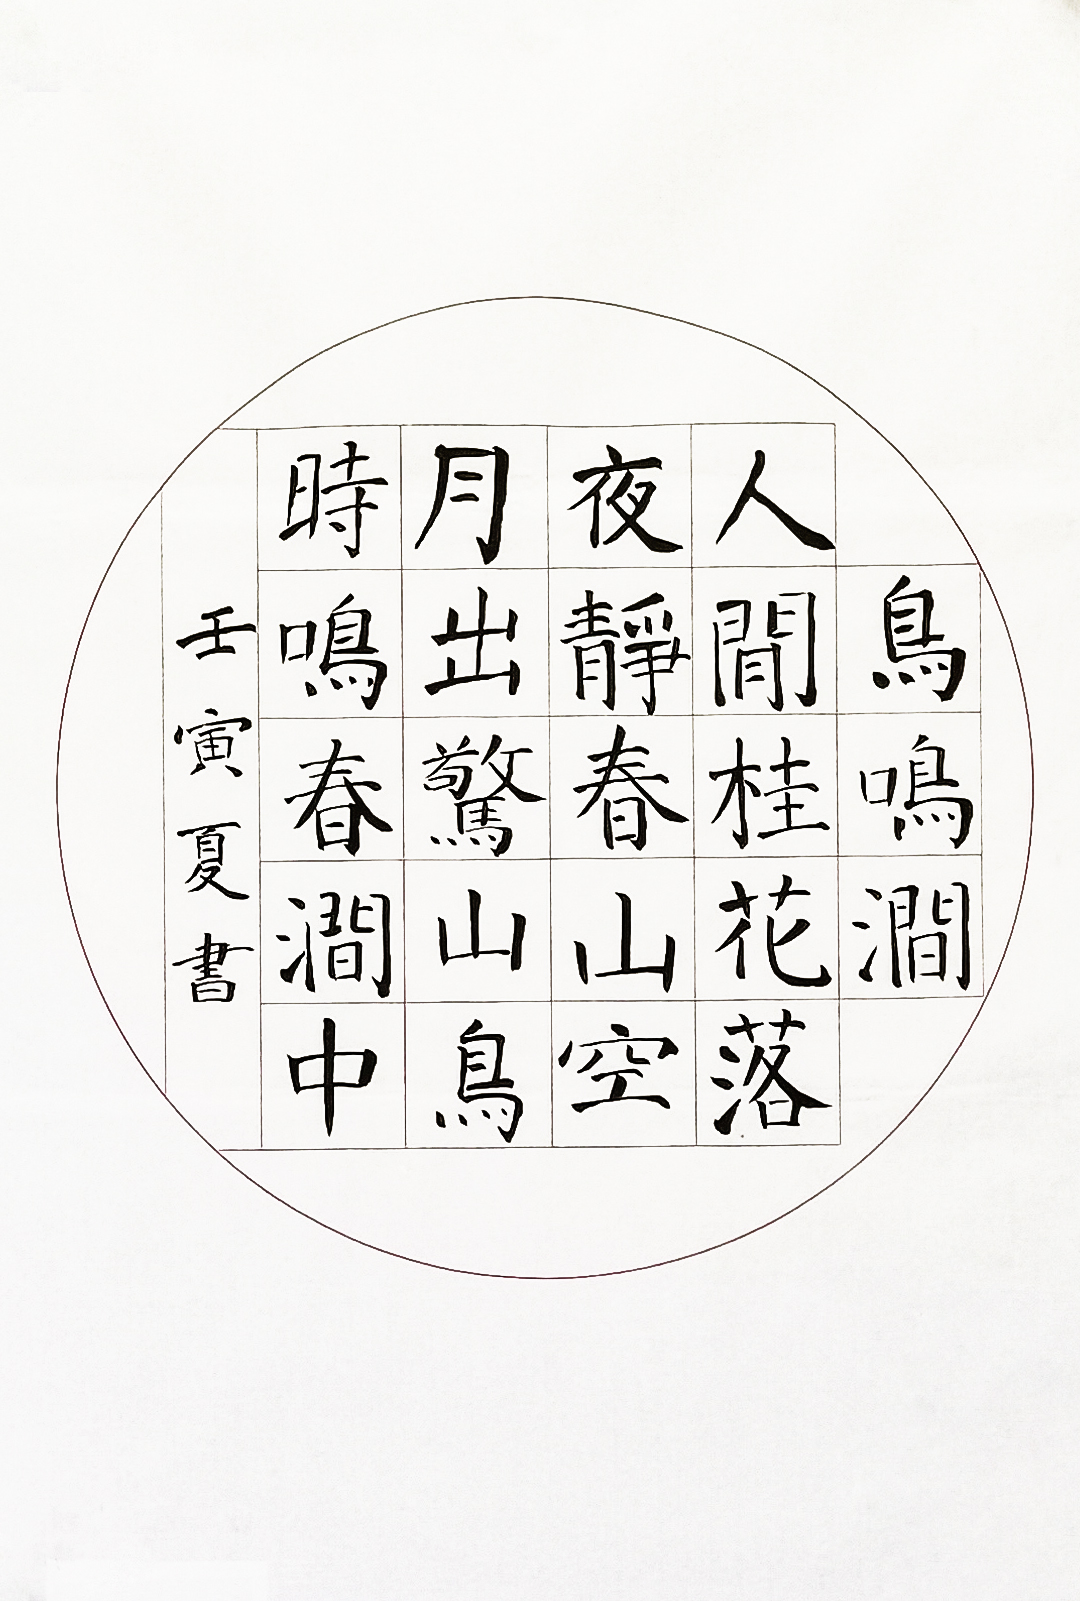 鳥鳴澗
人間桂花落
夜靜春山空
月出驚山鳥
時鳴春澗中
壬寅夏書